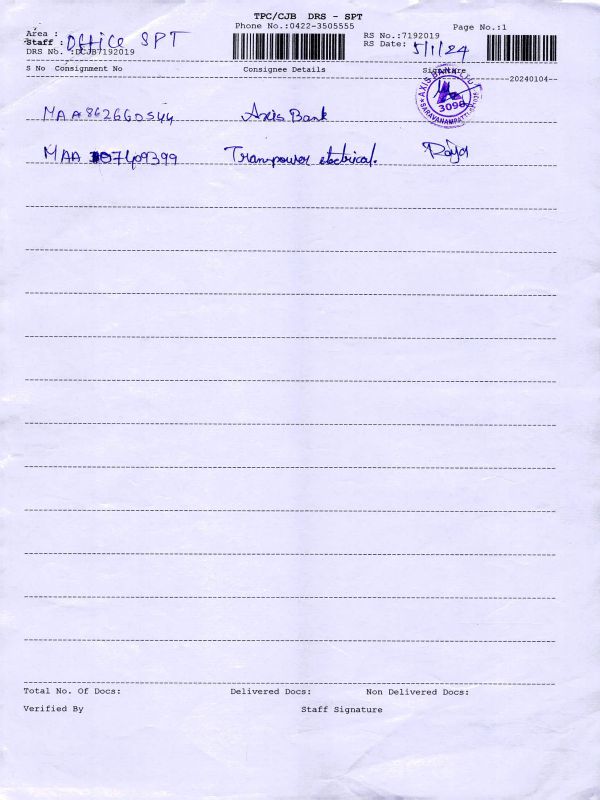 TPC/CJB DRS - SPT
Phone No.:0422-3505555
Page No.:1
Area :
Staff : Office SPT
DRS No. :DCJB7192019
RS No.:7192019
RS Date: 5/1/24
S No Consignment No Consignee Details Signature
--20240104--
AXIS BANK
3098
MAA862660544 Axis Bank
MAA 107409399 Tranpower electrical. Raja
Total No. Of Docs: Delivered Docs: Non Delivered Docs:
Verified By Staff Signature